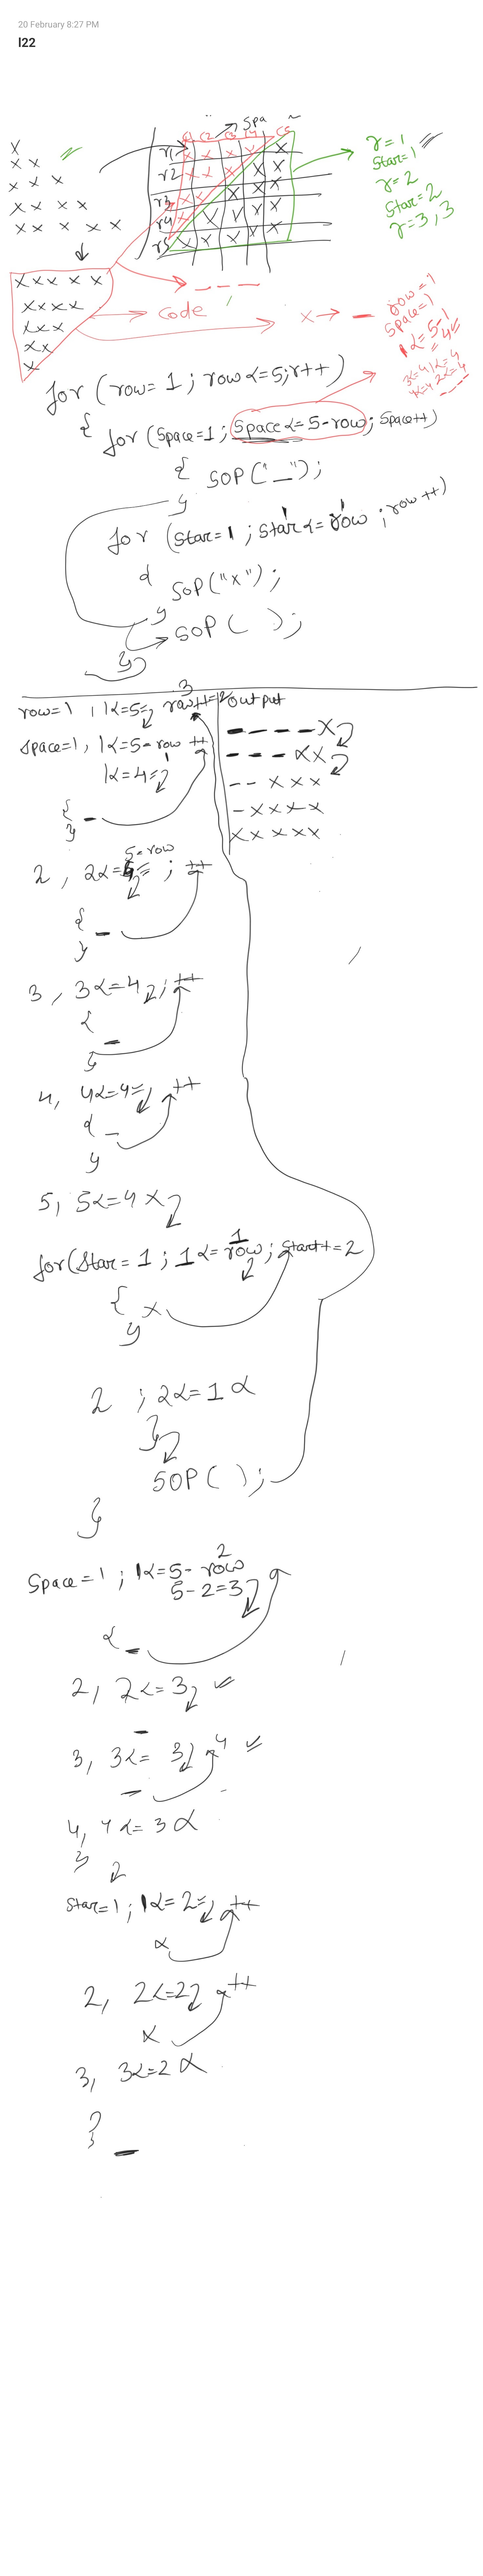 20 February 8:27 PM
l22
Spa
C1 C2 C3 C4 C5
x
x x
x x x
x x x x
x x x x x
r1 x x x x x
r2 x x x x
r3 x x x x x
r4 x x x
r5 x x x x x
r=1
Star=1
r=2
Star=2
r=3, 3
x x x x x
x x x x
x x x
x x
x
_ _ _
Code
x → _
row=1
Space=1
1<=5-1
= 4
3<=4
2<=4
for (row= 1 ; row<=5; r++)
{ for (Space=1 ; Space<=5-row ; Space++)
{ SOP("_");
}
for (Star=1 ; Star<=row ; row++)
1 1
{ SOP("x");
}
SOP( );
}
3
row=1 , 1<=5 , row++=2
Space=1, 1<=5-row ++
1
1<=4
{ _
}
5-row
2, 2<=4 ; ++
{ _
}
3, 3<=4 ; ++
{ _
}
4, 4<=4 ++
{ _
}
5, 5<=4 x
output
_ _ _ _ x
_ _ _ x x
_ _ x x x
_ x x x x
x x x x x
1
for(Star=1 ; 1<=row ; Star++=2
{ x
}
2 ; 2<=1 x
}
SOP( );
}
2
Space=1 ; 1<=5-row
5-2=3
{ _
2, 2<=3
_
3, 3<=3 4
_
4, 4<=3 x
}
Star=1 ; 1<=2 ++
x
2, 2<=2 ++
x
3, 3<=2 x
} _